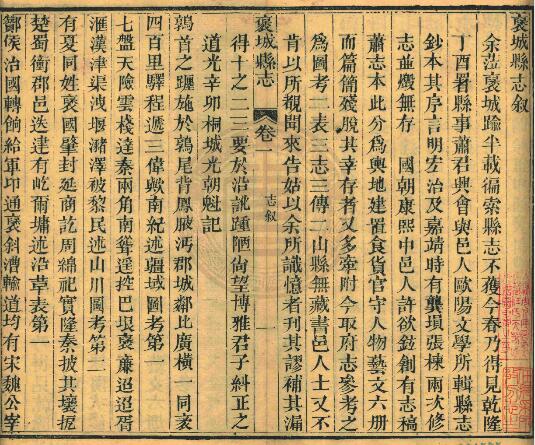 褒城縣志叙
余蒞褒城踰半載徧索縣志不獲今春乃得見乾隆
丁酉署縣事蕭君興會與邑人歐陽文學所輯縣志
鈔本其序言明宏治及嘉靖時有龔瑣張棟兩次修
志並燬無存 國朝康熙中邑人許欲鉉創有志稿
蕭志本此分爲輿地建置食貨官守人物藝文六册
而篇簡殘脫其幸存者又多牽附今取府志參考之
爲圖考二表三志三傳二山縣無藏書邑人士又不
肯以所覩聞來告姑以余所識憶者刊其謬補其漏
得十之二三要於沿訛踵陋尚望博雅君子糾正之
道光辛卯桐城光朝魁記
褒城縣志
卷
志叙
一
鶉首之躔施於鶉尾背鳳厥沔郡城鄰比廣橫一同袤
四百里驛程遞三偉歟南紀述疆域圖考第一
七盤天險雲棧達秦兩角南聳遥控巴垠褒廉迢迢胥
滙漢津渠洩堰瀦澤被黎民述山川圖考第二
有夏同姓褒國肇封延商訖周綿祀實隆秦披其壤扼
楚蜀衝郡邑迭建有屹爾墉述沿革表第一
酇侯治國轉餉給軍卭通褒斜漕輸道均有宋魏公宰